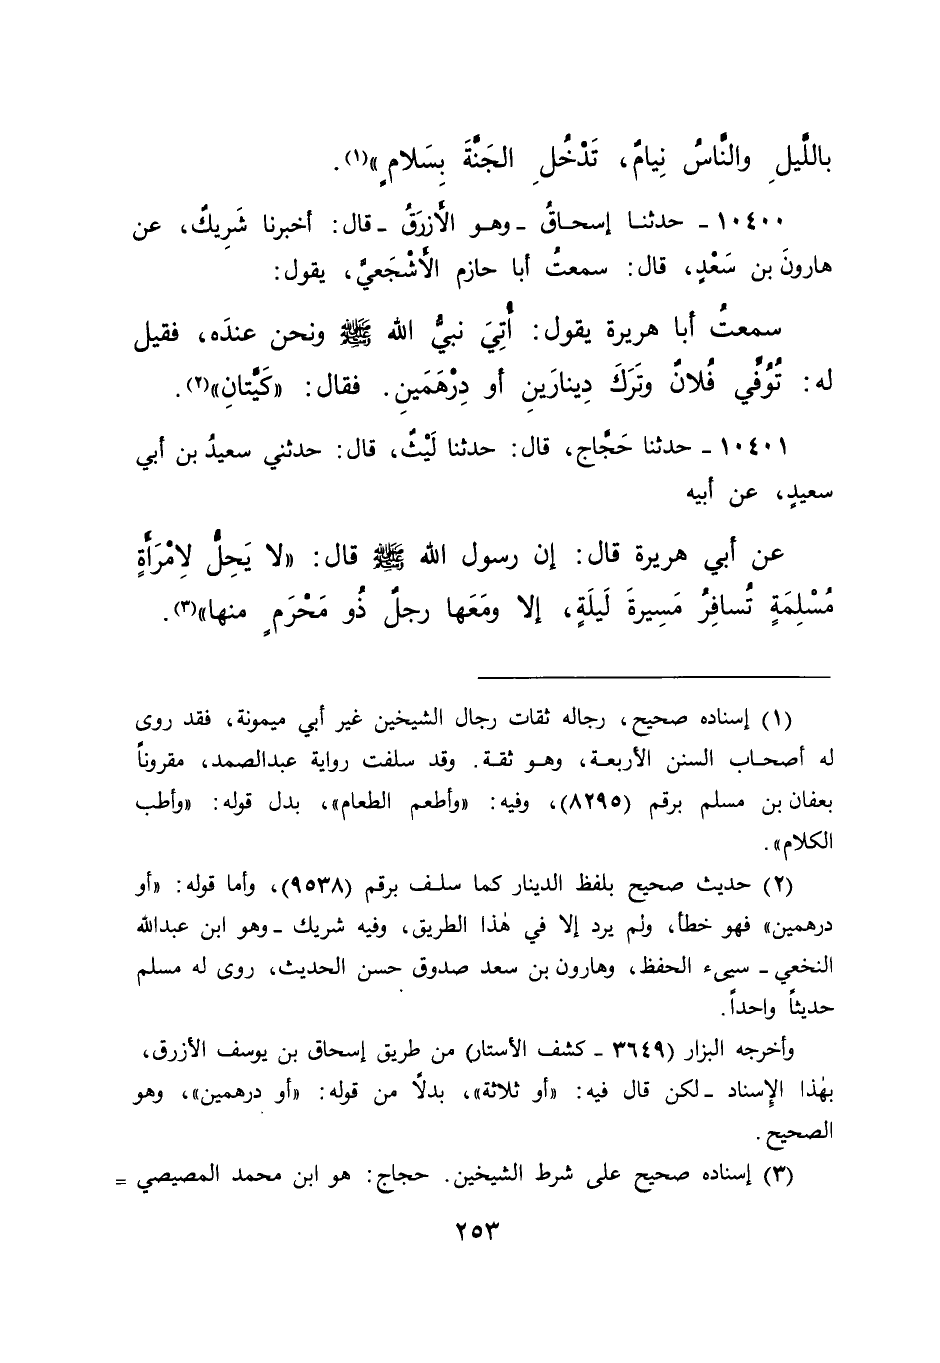 باللَّيلِ والنَّاسُ نِيامٌ، تَدْخُلِ الجَنَّةَ بِسَلامٍ»(١).
١٠٤٠٠ ـ حدثنا إسحاقُ ـ وهو الأَزرَقُ ـ قال: أخبرنا شَرِيكٌ، عن
هارونَ بن سَعْدٍ، قال: سمعتُ أبا حازم الأَشْجَعيَّ، يقول:
سمعتُ أبا هريرة يقول: أُتِيَ نبيُّ الله ﷺ ونحن عندَه، فقيل
له: تُوُفِّي فُلانٌ وتَرَكَ دِينارَينِ أو دِرْهَمَينِ. فقال: «كَيَّتانِ»(٢).
١٠٤٠١ ـ حدثنا حَجَّاج، قال: حدثنا لَيْثٌ، قال: حدثني سعيدُ بن أبي
سعيدٍ، عن أبيه
عن أبي هريرة قال: إن رسول الله ﷺ قال: «لا يَحِلُّ لِامْرَأَةٍ
مُسْلِمَةٍ تُسافِرُ مَسِيرةَ لَيلَةٍ، إلا ومَعَها رجلٌ ذُو مَحْرَمٍ منها»(٣).
(١) إسناده صحيح، رجاله ثقات رجال الشيخين غير أبي ميمونة، فقد روى
له أصحاب السنن الأربعة، وهو ثقة. وقد سلفت رواية عبدالصمد، مقروناً
بعفان بن مسلم برقم (٨٢٩٥)، وفيه: «وأطعم الطعام»، بدل قوله: «وأطب
الكلام».
(٢) حديث صحيح بلفظ الدينار كما سلف برقم (٩٥٣٨)، وأما قوله: «أو
درهمين» فهو خطأ، ولم يرد إلا في هٰذا الطريق، وفيه شريك ـ وهو ابن عبدالله
النخعي ـ سيىء الحفظ، وهارون بن سعد صدوق حسن الحديث، روى له مسلم
حديثاً واحداً.
وأخرجه البزار (٣٦٤٩ ـ كشف الأستار) من طريق إسحاق بن يوسف الأزرق،
بهٰذا الإسناد ـ لكن قال فيه: «أو ثلاثة»، بدلاً من قوله: «أو درهمين»، وهو
الصحيح.
(٣) إسناده صحيح على شرط الشيخين. حجاج: هو ابن محمد المصيصي =
٢٥٣